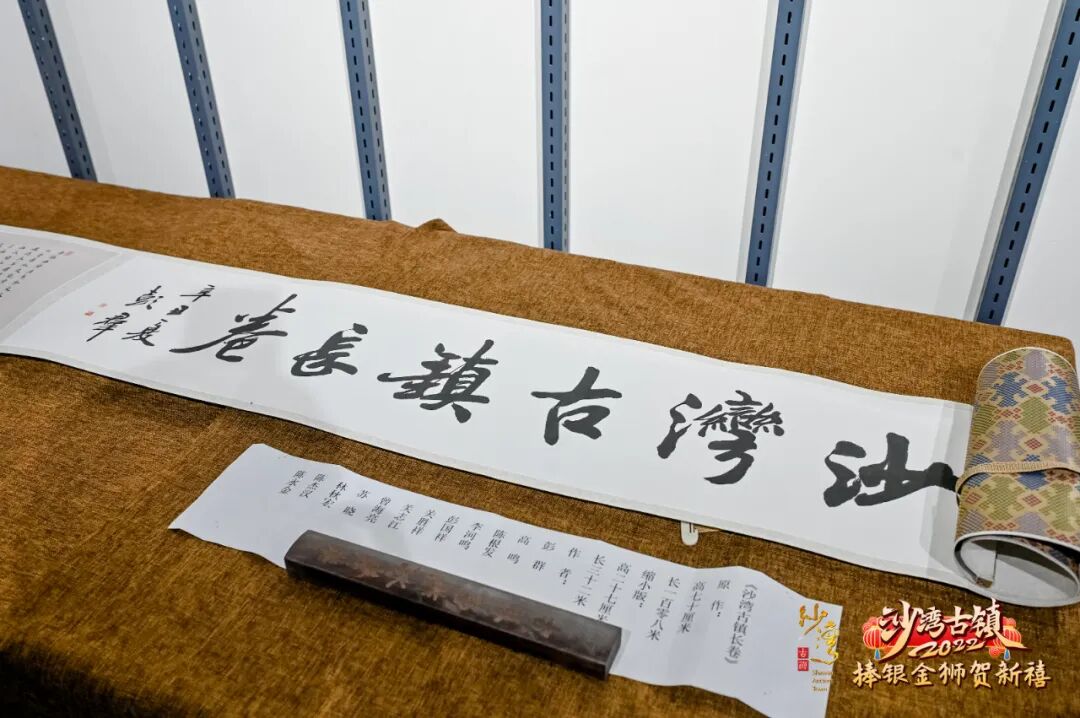 沙灣古鎮長卷
辛丑夏
彭群
《沙湾古镇长卷》
原作：
高七十厘米
长一百零八米
缩小版：
高二十七厘米
长三十二米
作者：
彭群
高鸣
陈根发
李河鸣
彭国祥
关胜祥
关志江
曾海亮
苏晓
林秋宏
陈杰汉
陈永金
沙湾
古镇
Shawan
Ancient
Town
沙湾古镇
2022
捧银金狮贺新禧